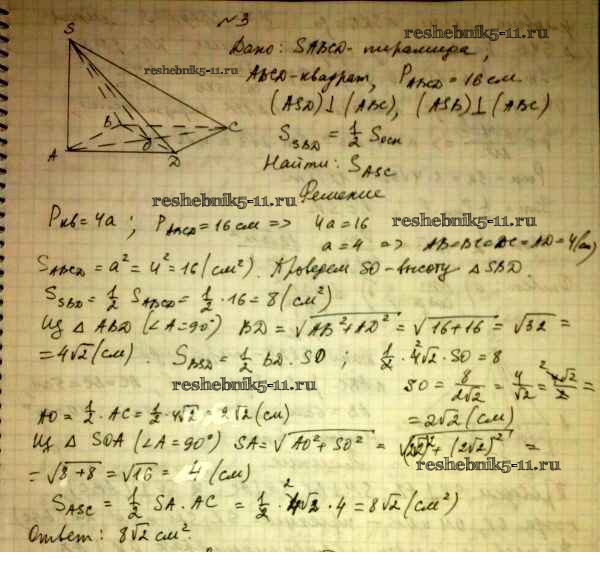 №3
reshebnik5-11.ru
Дано: SABCD - пирамида,
reshebnik5-11.ru
ABCD - квадрат, P_ABCD = 16 см
(ASD) ⊥ (ABC), (ASB) ⊥ (ABC)
S_SBD = 1/2 S_осн
Найти: S_ASC
S
B
C
O
A
D
reshebnik5-11.ru
Решение
P_кв = 4a; P_ABCD = 16 см => 4a = 16
reshebnik5-11.ru
a = 4 => AB=BC=DC=AD=4(см)
S_ABCD = a² = 4² = 16 (см²). Проведем SO - высоту △ SBD.
S_SBD = 1/2 S_ABCD = 1/2 · 16 = 8 (см²)
Из △ ABD (∠A=90°) BD = √AB²+AD² = √16+16 = √32 =
= 4√2 (см). S_BSD = 1/2 BD · SO; 1/2 · 4√2 · SO = 8
reshebnik5-11.ru
SO = 8/2√2 = 4/√2 = 4√2/2 =
= 2√2 (см)
AO = 1/2 · AC = 1/2 · 4√2 = 2√2 (см)
Из △ SOA (∠A=90°) SA = √AO²+SO² = √(2√2)²+(2√2)² =
reshebnik5-11.ru
= √8+8 = √16 = 4 (см)
S_ASC = 1/2 SA · AC = 1/2 · 4√2 · 4 = 8√2 (см²)
Ответ: 8√2 см².
reshebnik5-11.ru